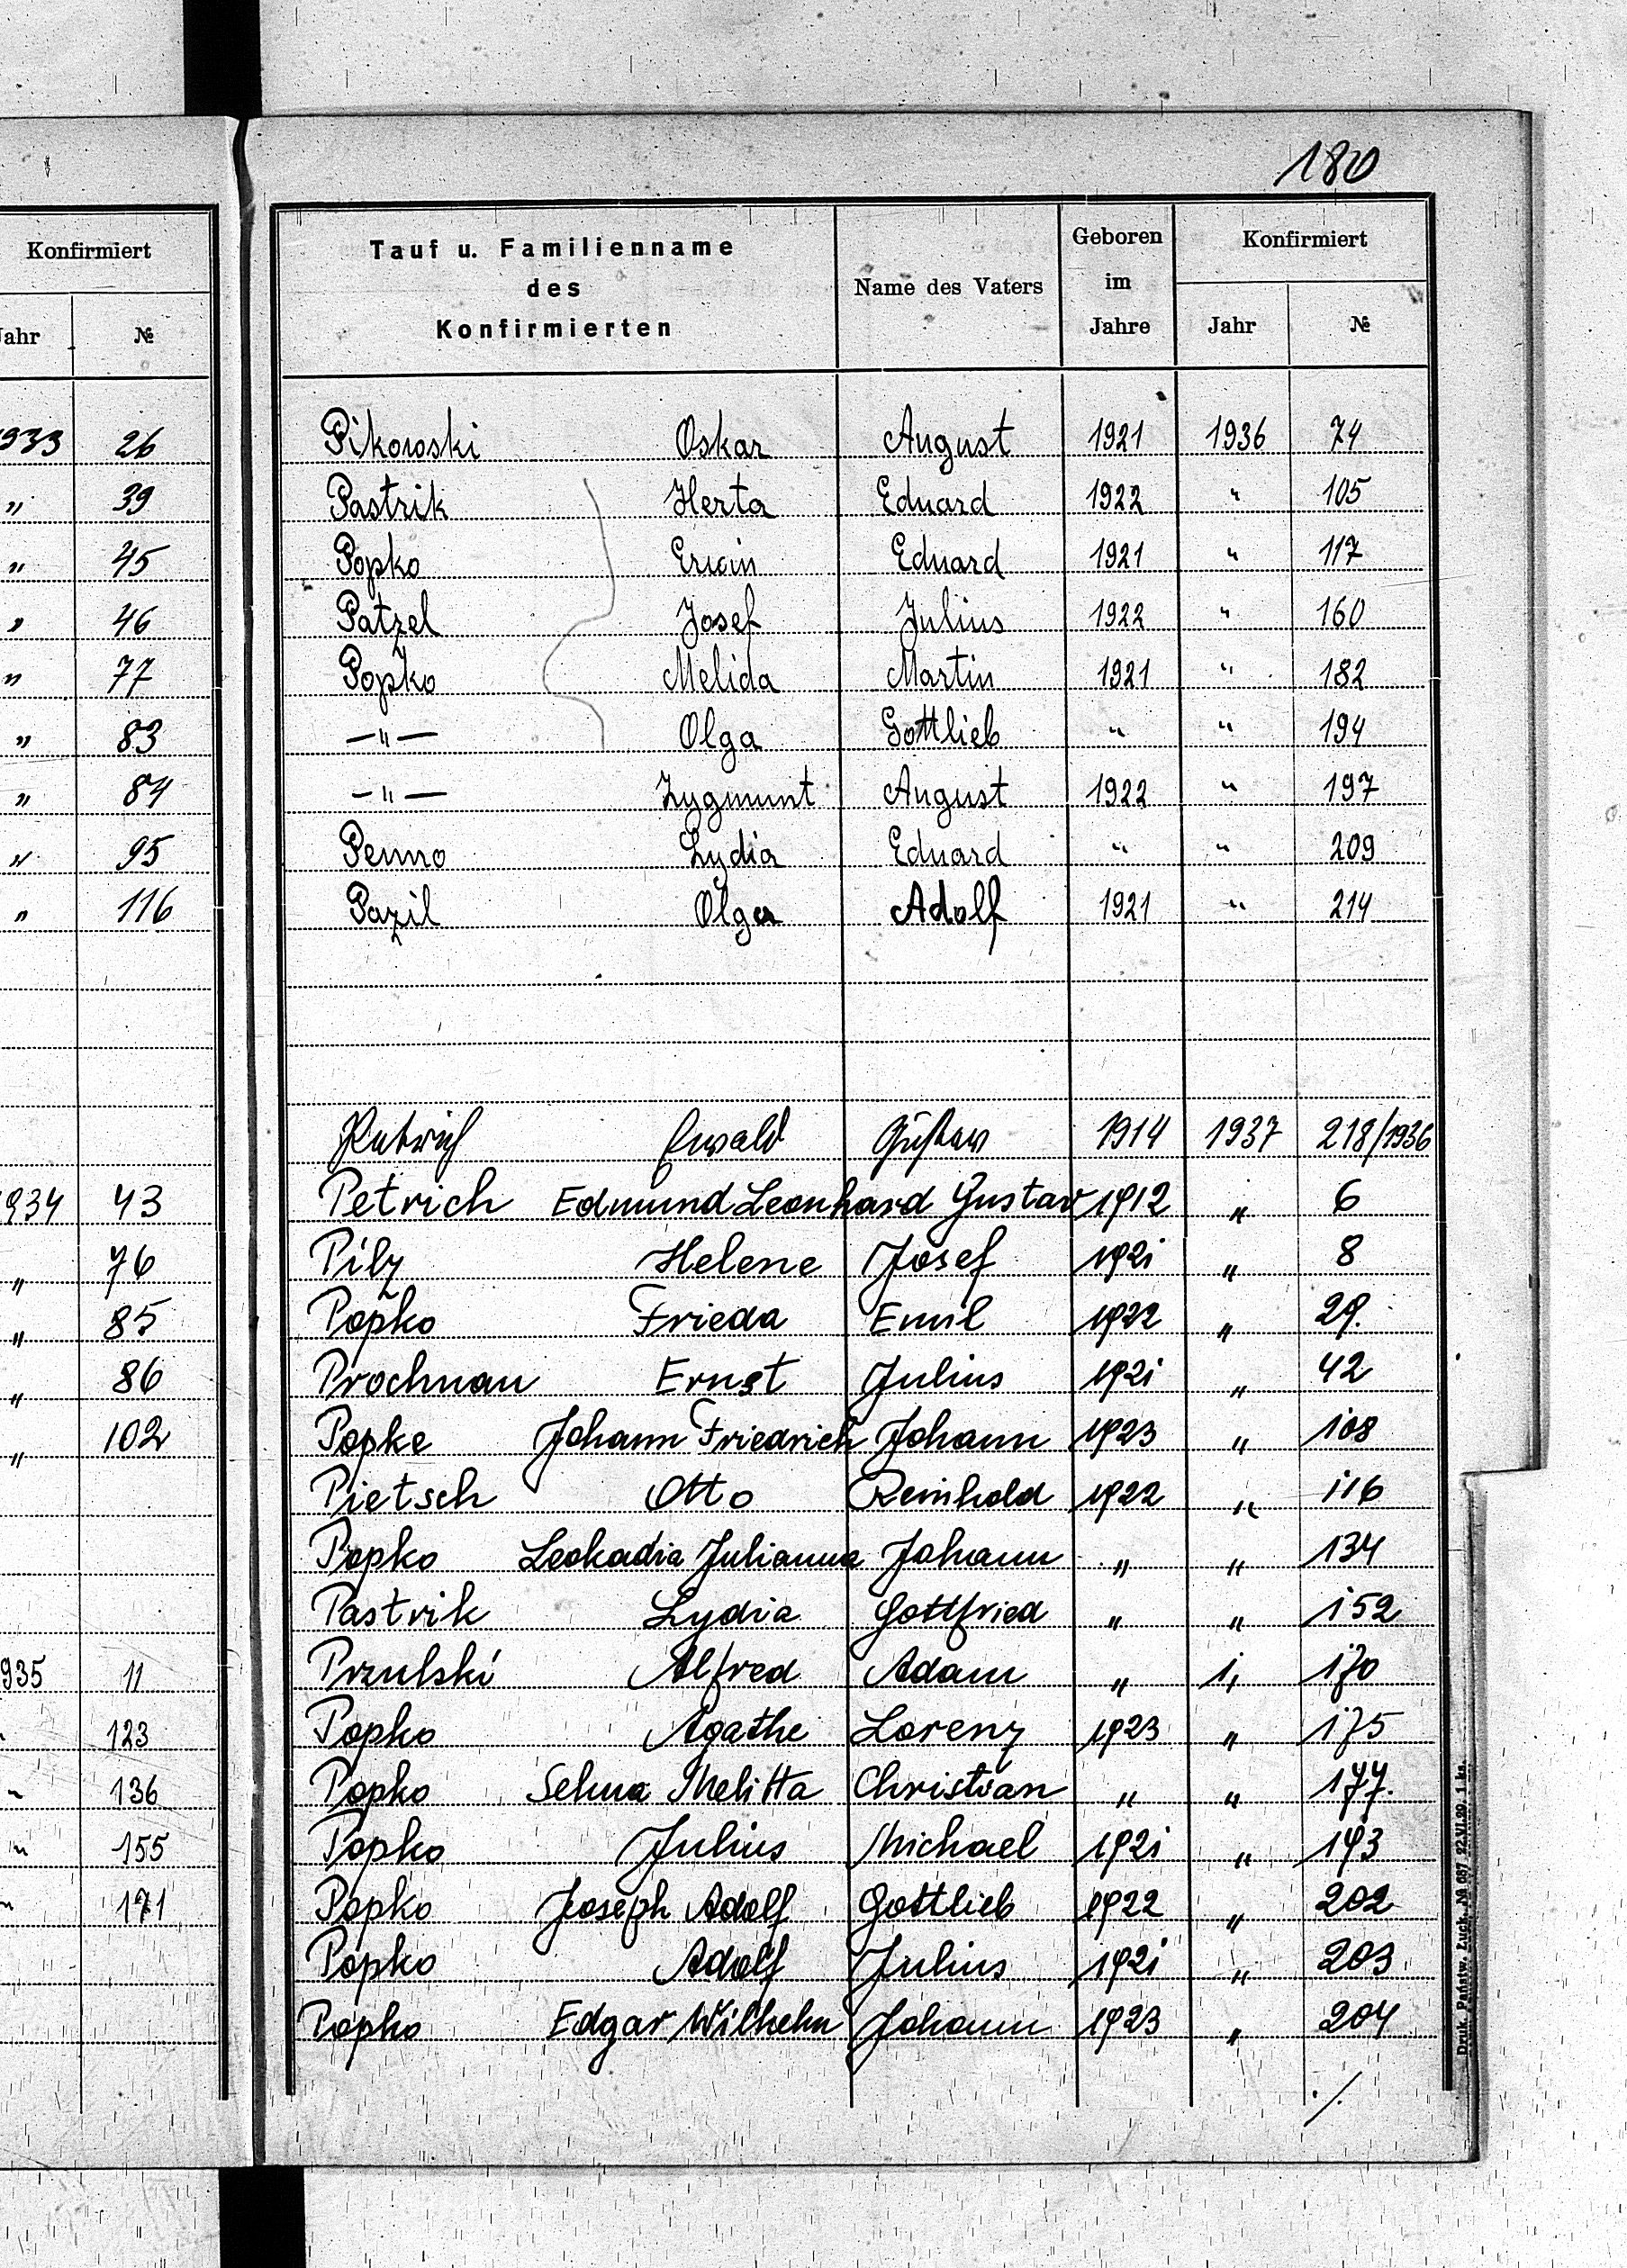 180
Konfirmiert
Jahr №
1933 26
" 39
" 45
" 46
" 77
" 83
" 84
" 95
" 116
1934 43
" 76
" 85
" 86
" 102
1935 11
" 123
" 136
" 155
" 171
Tauf u. Familienname des Konfirmierten
Name des Vaters
Geboren im Jahre
Konfirmiert
Jahr №
Pikowski Oskar August 1921 1936 74
Pastrik Herta Eduard 1922 " 105
Popko Erwin Eduard 1921 " 117
Patzel Josef Julius 1922 " 160
Popko Melida Martin 1921 " 182
—"— Olga Gottlieb " " 194
—"— Zygmunt August 1922 " 197
Penno Lydia Eduard " " 209
Pazil Olga Adolf 1921 " 214
Ewald Gustaw 1914 1937 218/1936
Petrich Edmund Leonhard Gustav 1912 " 6
Pilz Helene Josef 1921 " 8
Popko Frieda Emil 1922 " 29.
Prochnau Ernst Julius 1921 " 42
Popke Johann Friedrich Johann 1923 " 108
Pietsch Otto Reinhold 1922 " 116
Popko Leokadia Julianna Johann " " 134
Pastrik Lydia Gottfried " " 152
Przulski Alfred Adam " " 170
Popko Agathe Lorenz 1923 " 175
Popko Selma Melitta Christian " " 177.
Popko Julius Michael 1921 " 193
Popko Joseph Adolf Gottlieb 1922 " 202
Popko Adolf Julius 1921 " 203
Popko Edgar Wilhelm Johann 1923 " 204
./.
Druk. Państw. Łuck. № 687 22.VI.29. 1 ks.